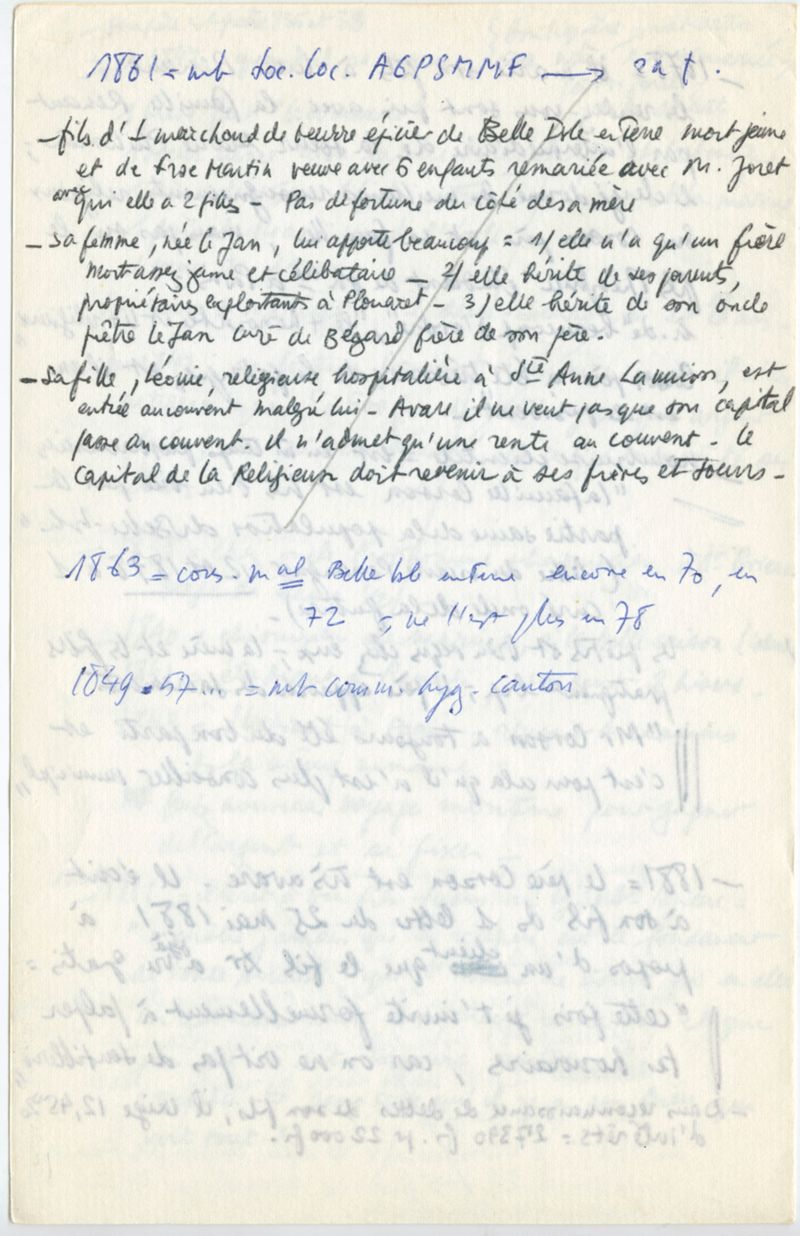 1861 = mb Soc. loc. AGPSMMF → sa †.
- fils d'1 marchand de beurre épicier de Belle Isle en Terre mort jeune
et de Froc Martin veuve avec 6 enfants remariée avec M. Joret
avec qui elle a 2 filles - Pas de fortune du côté de sa mère
- Sa femme, née le Jan, lui apporte beaucoup = 1/ elle n'a qu'un frère
mort assez jeune et célibataire - 2/ elle hérite de ses parents,
propriétaires exploitants à Plouaret - 3/ elle hérite de son oncle
prêtre le Jan curé de Bégard frère de son père.
- Sa fille, Léonie, religieuse hospitalière à Ste Anne Lannion, est
entrée au couvent malgré lui - Avare il ne veut pas que son capital
passe au couvent. Il n'admet qu'une rente au couvent - le
capital de la Religieuse doit revenir à ses frères et soeurs -
1863 = cons. mal Belle Isle en terre encore en 70, en
72 , ne l'est plus en 78
1849 . 57... = mb comm. hyg. canton